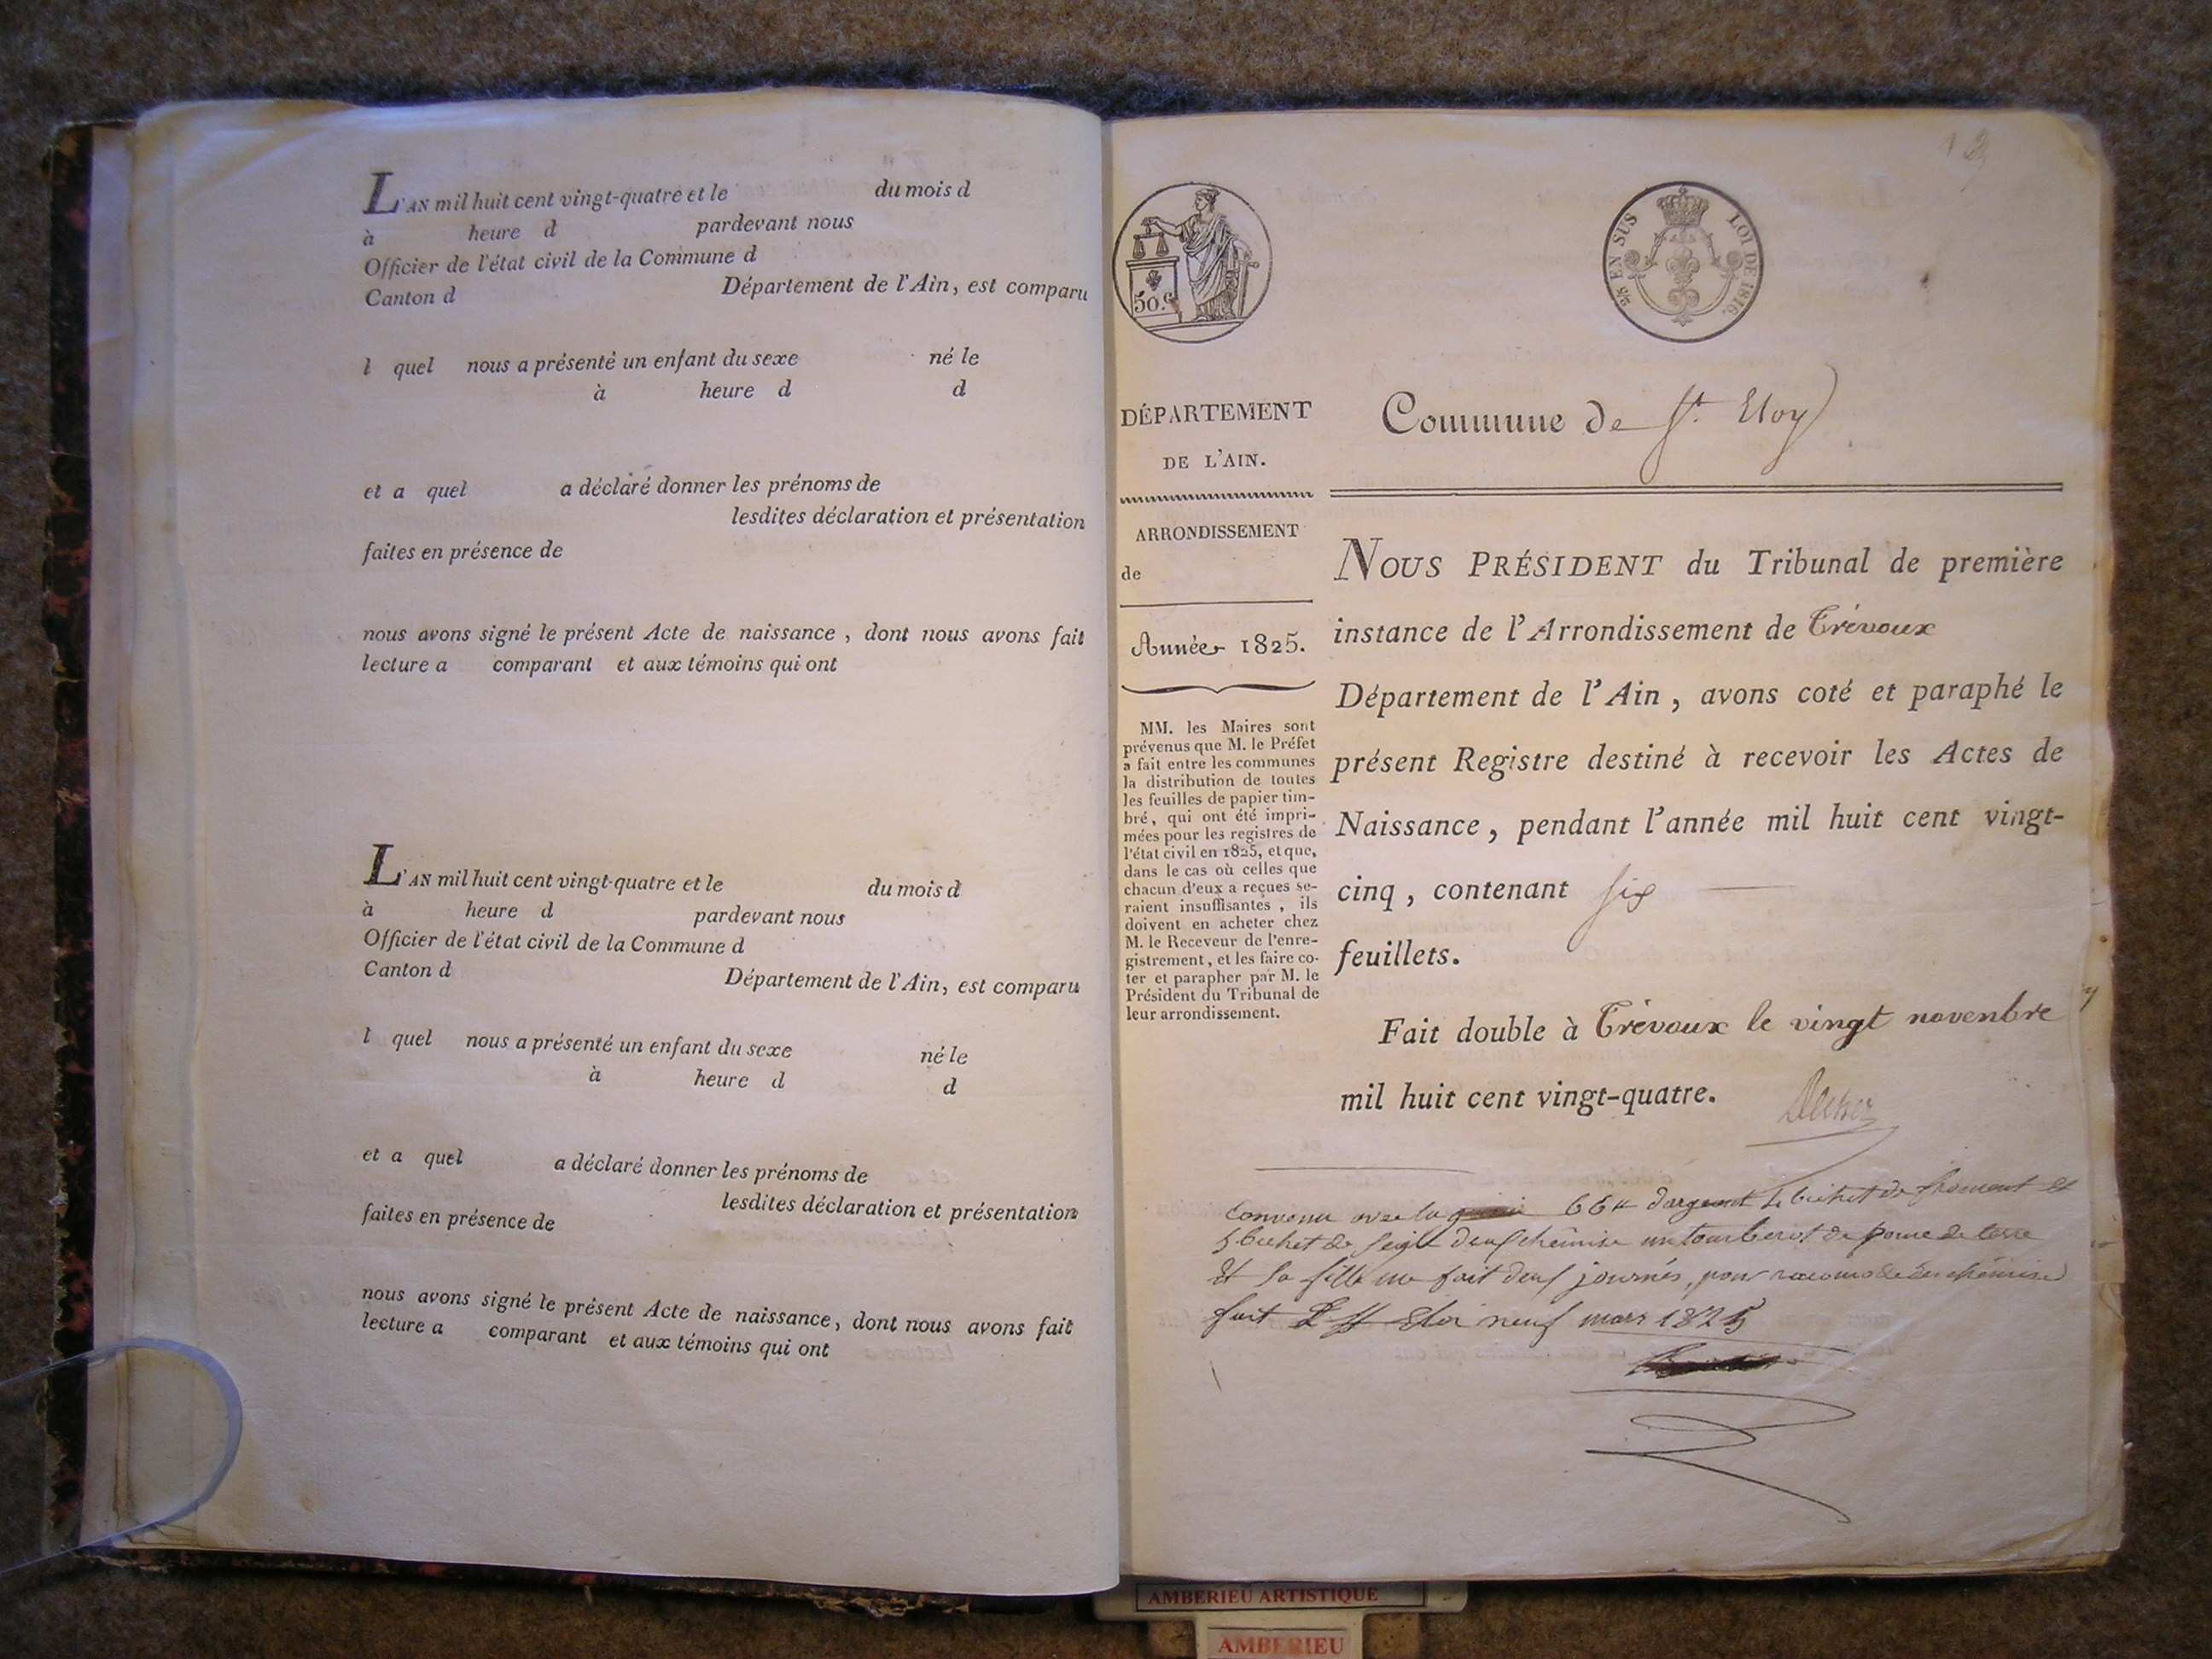 L'AN mil huit cent vingt-quatre et le du mois d
à heure d pardevant nous
Officier de l'état civil de la Commune d
Canton d Département de l'Ain, est comparu
l quel nous a présenté un enfant du sexe né le
à heure d d
et a quel a déclaré donner les prénoms de
lesdites déclaration et présentation
faites en présence de
nous avons signé le présent Acte de naissance, dont nous avons fait
lecture a comparant et aux témoins qui ont
L'AN mil huit cent vingt-quatre et le du mois d
à heure d pardevant nous
Officier de l'état civil de la Commune d
Canton d Département de l'Ain, est comparu
l quel nous a présenté un enfant du sexe né le
à heure d d
et a quel a déclaré donner les prénoms de
lesdites déclaration et présentation
faites en présence de
nous avons signé le présent Acte de naissance, dont nous avons fait
lecture a comparant et aux témoins qui ont
50.c
EN SUS LOI DE 1816.
DÉPARTEMENT
DE L'AIN.
ARRONDISSEMENT
de
Année 1825.
MM. les Maires sont
prévenus que M. le Préfet
a fait entre les communes
la distribution de toutes
les feuilles de papier tim-
bré, qui ont été impri-
mées pour les registres de
l'état civil en 1825, et que,
dans le cas où celles que
chacun d'eux a reçues se-
raient insuffisantes, ils
doivent en acheter chez
M. le Receveur de l'enre-
gistrement, et les faire co-
ter et parapher par M. le
Président du Tribunal de
leur arrondissement.
Commune de St. Eloy
NOUS PRÉSIDENT du Tribunal de première
instance de l'Arrondissement de Trévoux
Département de l'Ain, avons coté et paraphé le
présent Registre destiné à recevoir les Actes de
Naissance, pendant l'année mil huit cent vingt-
cinq, contenant six
feuillets.
Fait double à Trévoux le vingt novenbre
mil huit cent vingt-quatre.
Convenu avec la 66 d'argent bichet de froment et
5 bichet de seigle deux chemise un tomberot de pome de terre
Et la fille me fait deux journés, pour racomode des chemise
fait St Eloi neuf mars 1825
AMBERIEU ARTISTIQUE
AMBERIEU